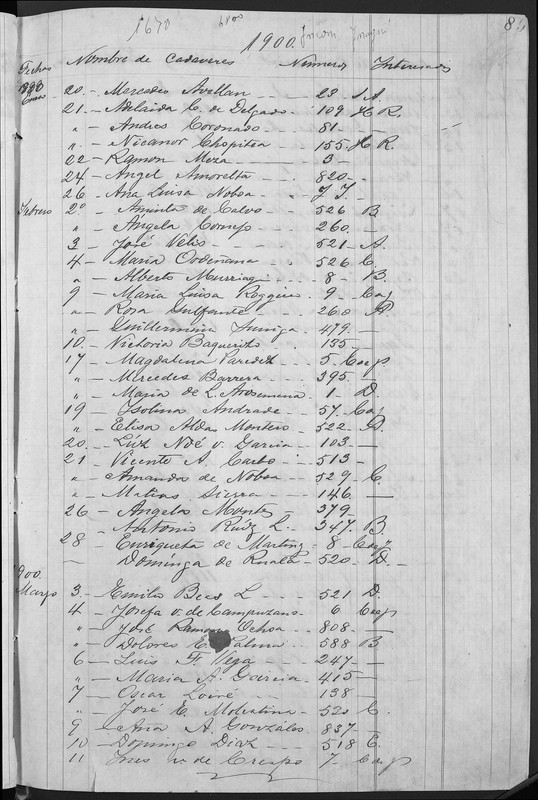 1670 6800
1900. 8
Fechas Nombre de Cadaveres Número Interesado
1900
Enero 20 - Mercedes Avellan - - 23 S A.
21 - Adelaida C. de Delgado - 109 H R.
" - Andres Coronado - 81 -
" - Nicanor Chopitea - - 155 H R.
22 - Ramon Meza - - 3 -
24 - Angel Amoretta - - 820 -
26 - Ana Luisa Noboa - - J J. -
Febrero 2º - Aminta de Calvo - - 526 B
" - Angela Cornejo - - 260 -
3 - José Velis - - - 521 - A.
4 - Maria Ordeñana - - 526 C.
" - Alberto - 8 - B.
9 - Maria Luisa - 9 - Caep
" - Rosa - 260
" - Guillermina Zuniga - 479 -
10 - Victoria Baquerizo - 135 -
17 - Magdalena Paredes - 5 - Caep
" - Mercedes Barrera - - 395 -
" - Maria de L. Arosemena - 1 - D.
19 - Isolina Andrade - - 57 - Caep
" - Elisa Aldas Montero - 522 -
20 - Luz Noé v. Garcia - 103 -
21 - Vicente A. Carbo - - 513 -
" - Amanda de Noboa - - 529 - C.
" - Matias Sierra - - - 146 -
26 - Angela - - 379 -
- Antonio Ruiz L. - - 347 B
28 - Enriqueta de Martinez - 8 - Caep
- Dominga de - 520 D. -
900.
Marzo 3 - Emilio Bees L - - 521 D.
4 - Josefa v. de Campuzano - 6 Caep
" - José Ramon Ochoa - - 808 - -
" - Dolores E. Palma - - 588 B
6 - Luis F. Vega - - 247 - -
" - Maria A. Garcia - 415 -
7 - Oscar - - 138 -
" - José E. - 520 C.
9 - Ana A. Gonzáles - 837 -
10 - Domingo Diaz - - 518 C.
11 Ines v. de Crespo - 7 - Caep